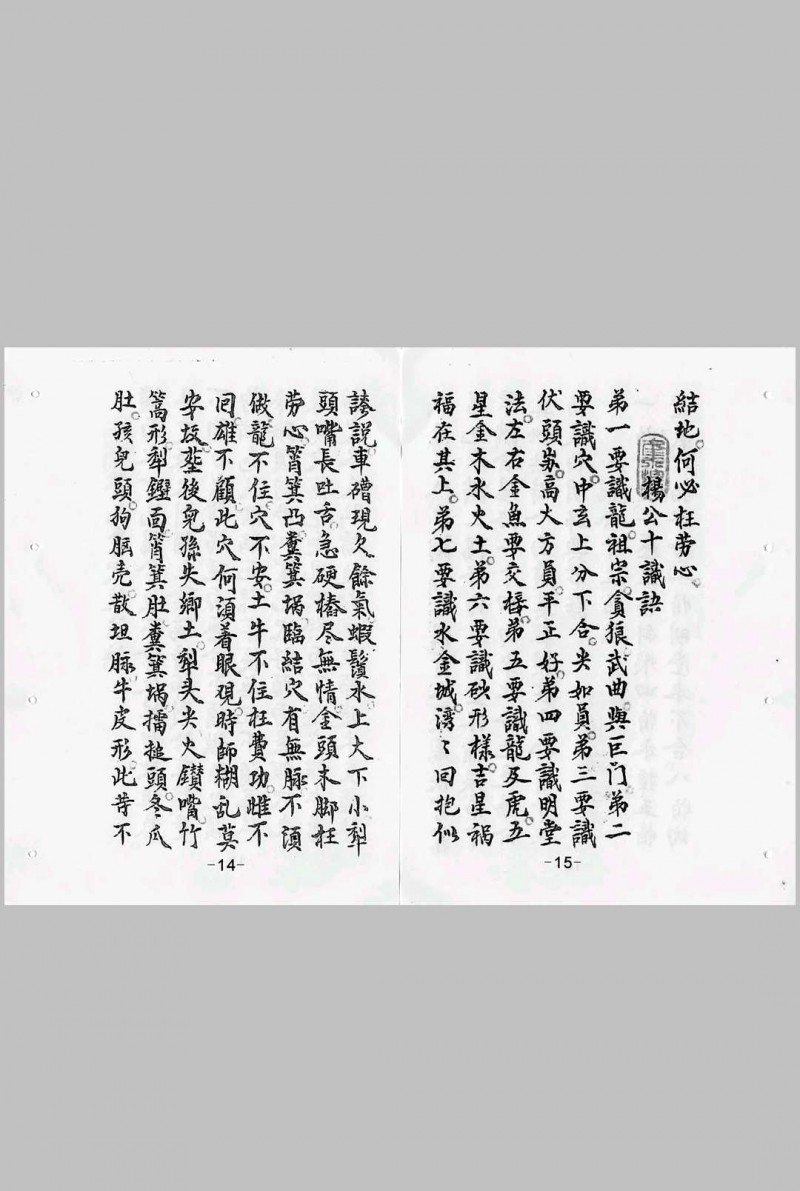 謗説車礶現欠餘氣蝦鬚水上大下小犁
頭嘴長吐舌急硬樁尽無情金頭木脚枉
劳心筲箕凸糞箕堝臨結穴有無脉不湏
做龍不住穴不安土牛不住枉費功雌不
囘雄不顧此穴何湏着眼观時師糊乱莫
安坟塟後兒孫失鄉土犁头尖火鑚嘴竹
篙形犁鐴面筲箕肚糞箕堝擂搥頭冬瓜
肚孩兒頭狗腦壳散坦脉牛皮形此等不
-14-
結地何必枉劳心
楊公十識訣
弟一要識龍祖宗貪狼武曲與巨门弟二
要識穴中玄上分下合尖如員弟三要識
伏頭岁高大方員平正好弟四要識明堂
法左右金魚要交椄弟五要識龍及虎五
星金木水火土弟六要識砂形樣吉星禍
福在其上弟七要識水金城湾〻回抱似
-15-